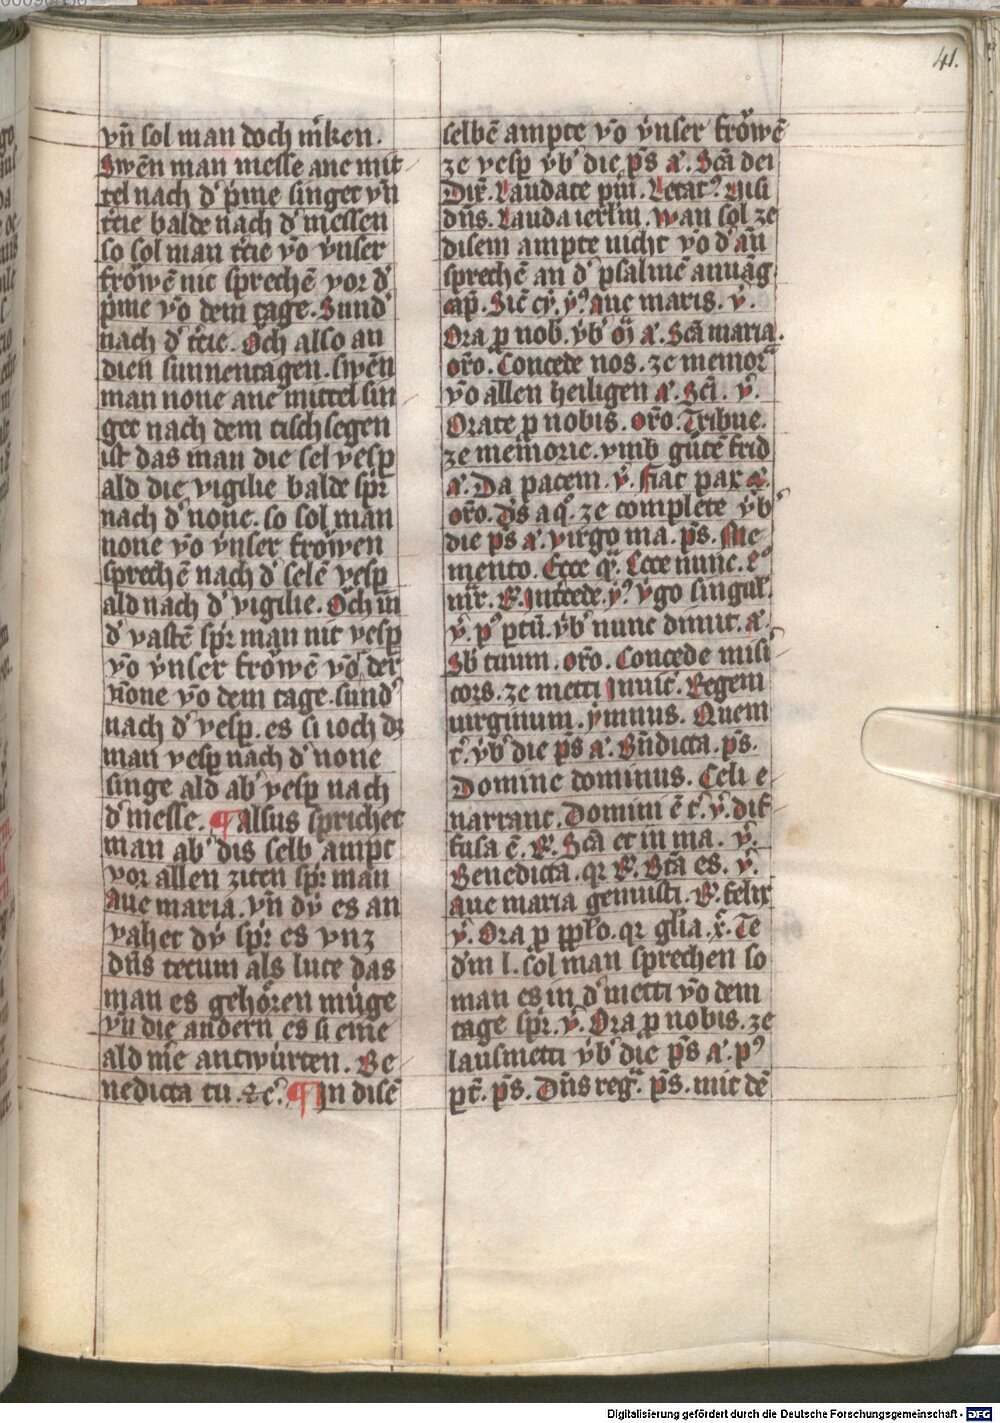 41.
vn̄ sol man doch mͤken.
Swēn man messe ane mit
tel nach dʾ pͥme singet vn̄
tͤcie balde nach dʾ messen
so sol man tͤcie vō v̈nser
frȯwē nit sprechē vor dʾ
pͥme vō dem tage. Sundʾ
nach dʾ tͤcie. Och also an
dien sunnentagen. swēn
man none ane mittel sin
get nach dem tisch segen
ist das man die sel vesp̄
ald die vigilie balde spͥr
nach dʾ none. so sol man
none vō v̈nser frȯwen
sprechē nach dʾ selē vesp̄
ald nach dʾ vigilie. Och in
dʾ vastē spͥr man nit vesp̄
vō v̈nser frȯwē vō der
none vō dem tage. sundʾ
nach dʾ vesp̄. es si ioch dꝫ
man vesp̄ nach dʾ none
singe ald abʾ vesp̄ nach
dʾ messe. ¶ Alsus sprichet
man abʾ dis selb ampt
vor allen ziten spͥr man
Aue maria. vn̄ dv̇ es an
vahet dv̇ spͥr es vnz
dn̄s tecum als lute das
man es gehȯren mu̇ge
vn̄ die andern es si eine
ald me antwu̇rten. Be
nedicta tu. ⁊cʾ. ¶ In disē
selbē ampte vō v̈nser frȯwē
ze vesp̄ v̈bʾ die p̄s aʾ. Scā dei
Dix̄. Laudate pūi. Letatꝰ. Nisi
dn̄s. Lauda ierl̄m. wan sol ze
disem ampte nicht vō dʾ an̄
sprechē an dʾ psalmē anuāg.
cap̄. Sic̄ cẏ. ẏꝰ. aue maris. v̇.
Ora ꝓ nob̄. v̈bʾ oī aʾ. Scā maria.
or̄o. Concede nos. ze memorʾ
vō allen heiligen aʾ. Sc̄i. v̇.
Orate ꝓ nobis. or̄o. Tribue.
ze memorie. vmb gu̇tē frid
aʾ. Da pacem. v̇. Fiat pax aʾ.
or̄o. Ds̄ a qͦ. ze complete v̈bʾ
die p̄s aʾ. virgo ma. p̄s. Me
mento. Ecce qͣ. Ecce nunc. Cʾ
mr̄. R̄. Int̄cede. ẏꝰ. v̇go singul̄.
v̇. pꝰ ptū. v̈bʾ nunc dimit. aʾ.
Sb̄ tuum. or̄o. Concede misʾi
cors. ze metti Inuit̄. Regem
uirginum. ẏmnus. Quem
tʾ. v̈bʾ die p̄s aʾ. Bn̄dicta. p̄s.
Domine dominus. Celi e
narrant. Domini ē tʾ. v̇. dif
fusa ē. R̄. Scā et in ma. v̇.
Benedicta. qr R̄. Bt̄a es. v̇.
aue maria genuisti. R̄. felix
v̇. Ora ꝓ ppl̄o. qr gl̄ia. x̄. Te
dm̄ l. sol man sprechen so
man es in dʾ metti vō dem
tage spͥr. v̇. Ora ꝓ nobis. ze
lausmetti v̈bʾ die p̄s aʾ. pꝰ
pt̄. p̄s. Dn̄s regͣ. p̄s. mit dē
Digitalisierung gefördert durch die Deutsche Forschungsgemeinschaft - DFG